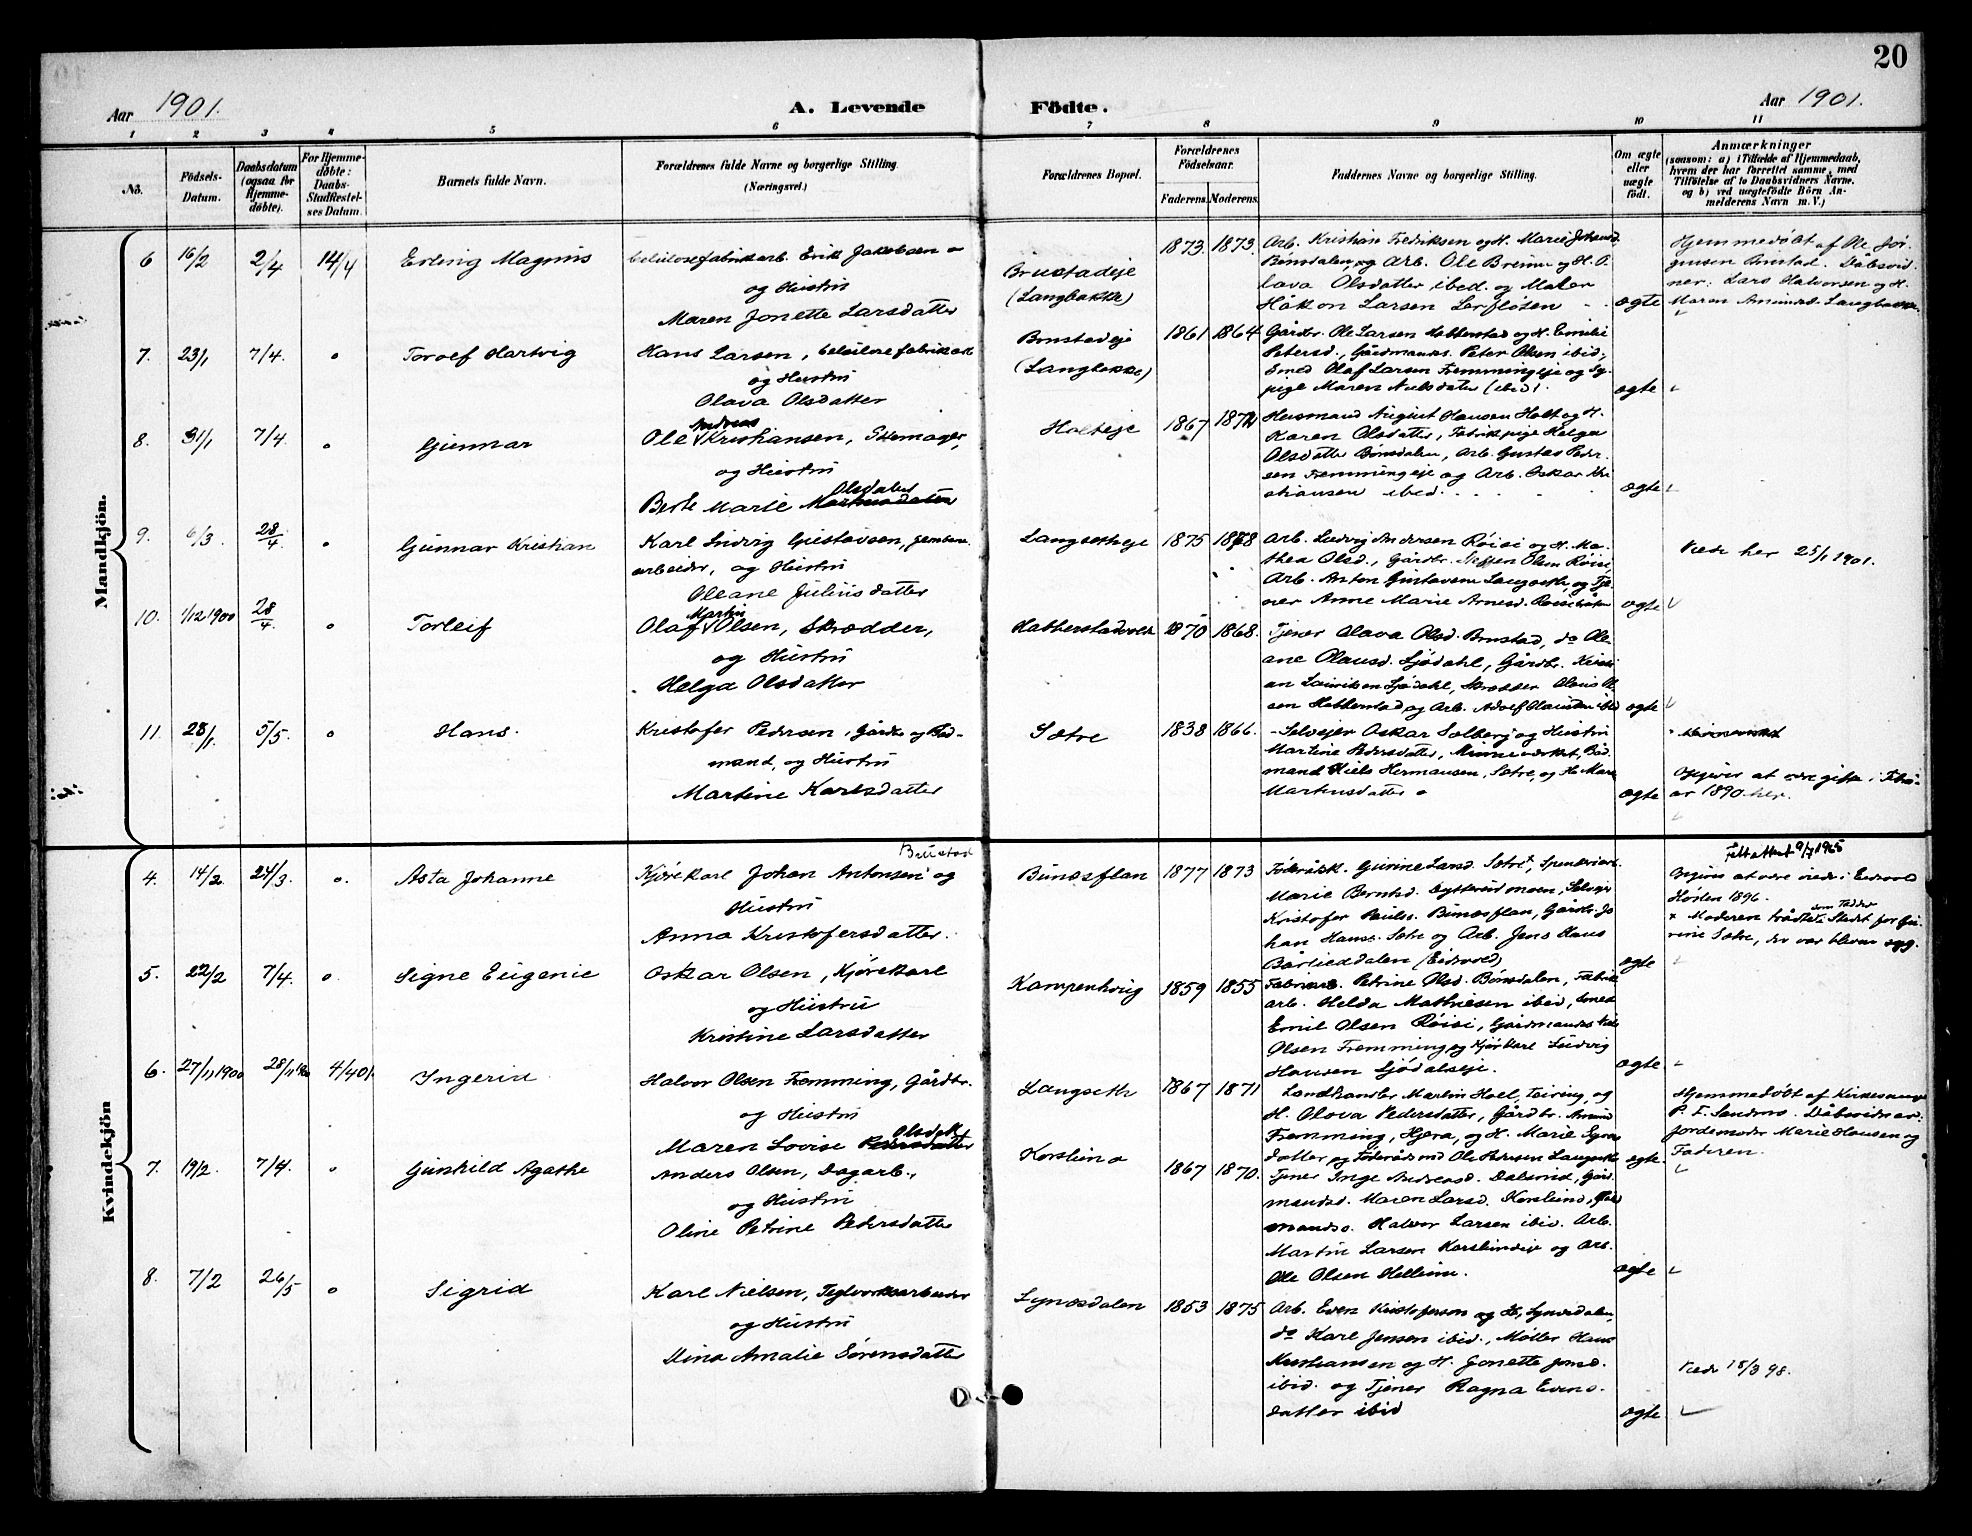 20
Aar 1901.
A. Levende Födte.
Aar 1901.
1 2 3 4 5 6 7 8 9 10 11
No.
Födsels-
Datum.
Daabsdatum
(ogsaa for
Hjemme-
døbte).
For Hjemme-
døbte:
Daabs-
Stadfæstel-
ses Datum.
Barnets fulde Navn.
Forældrenes fulde Navne og borgerlige Stilling
(Næringsvei.)
Forældrenes Bopæl.
Forældrenes
Födselsaar.
Faderens. Moderens.
Faddernes Navne og borgerlige Stilling.
Om ægte
eller
uægte
födt.
Anmærkninger
(saasom: a) i Tilfælde af Hjemmedaab,
hvem der har forrettet samme, med
Tilföielse af to Daabsvidners Navne,
og b) ved uægtefödte Börn An-
melderens Navn m. V.)
Mandkjön.
6 16/2 2/4 14/4 Erling Magnus
Erik Jakobsen
og Hustru
Maren Jonette Larsdatter
Brustadeje
(Langbakke)
1873 1873.
Arb. Kristian Fredriksen og H. Marie
Bönsdalen, og Arb. Ole og H. O-
lava Olsdatter ibed. og Maler
Håkon Larsen
ægte
Hjemmedøbt af Ole Jör-
gensen Brustad. Dåbsvid-
ner: Lars Halvorsen og H.
Maren
7. 23/1 7/4. o Toralf Hartvig
Hans Larsen,
og Hustru
Olava Olsdatter
Brustadeje
(Langbakke)
1861 1864
Gårdbr. Ole Larsen Habberstad og H. Emilie
Petersd., Gårdmands. Peter Olsen ibid.,
Smed Olaf Larsen Fremmingeje og Sy-
pige Maren Nielsdatter (ibid).
ægte
8. 31/1 7/4. o Gunnar
Andreas
Ole Kristiansen, Skomager,
og Hustru
Olsdatter
Berte Marie
Holteje
1867 1872
Husmand August Hansen Holt og H.
Karen Olsdatter, Fabrikpige Helga
Olsdatter Bönsdalen, Arb. Gustav Peder-
sen Fremmingeje og Arb. Oskar Kri-
stiansen ibed.
ægte
9. 6/3 28/4. o Gunnar Kristian
Karl Ludvig Gustavsen, jernbane
arbeider, og Hustru
Oleane Juliusdatter
Langsetheje
1875 1878
Arb. Ludvig Andersen Röisi og H. Ma-
thea Olsd., Gårdbr. Olsen Röisi,
Arb. Anton Gustavsen Langseth, og Tje-
ner Anne Marie Arnesd.
ægte
Viede her 25/1 1901.
10. 1/12 1900 28/4. o Torleif
Martin
Olaf Olsen, Skrædder,
og Hustru
Helga Olsdatter
1870 1868.
Tjener Olava Olsd. Brustad, do Ole-
ane Olausd. Sjödahl, Gårdbr. Kristi-
an Lauritsen Sjödahl, Skrædder
sen Habberstad, og Arb. Adolf
ægte
11. 28/1. 5/5. o Hans.
Kristofer Pedersen, Gårdbr. og Bød-
mand, og Hustru
Martine Karlsdatter
Sætre
1838 1866.
Selveier Oskar Solberg og Hustru
Martine Pedersdatter,
mand Niels Hermansen, Sætre, og H. Mare
Martinusdatter
ægte
Opgiver at være gifte i
1890 her.
Kvindekjön
4. 14/2 24/3. o. Asta Johanne
Brustad
Kjörekarl Johan Antonsen og
Hustru
Anna Kristofersdatter.
Bunæsflan
1877 1873
Gurine Larsd. Sætre,
Marie Berntsd. Selveier
Kristofer Pauls. Bunæsflan, Gårdbr. Jo-
han Hans. Sætre og Arb. Jens Hans
Bårliddalen (Eidsvold)
ægte
1965
Opgiver at være viede i Eidsvold
Hösten 1896.
som Fadder
x Moderen trådte i Stedet for Gu-
rine Sætre, der var bleven syg.
5. 22/2 7/4. o. Signe Eugenie
Oskar Olsen, Kjörekarl
og Hustru
Kristine Larsdatter
1859 1855
Petrine Olsd. Bönsdalen, Fabrik
arb. Helda Mathiesen ibid,
Emil Olsen Röisi, Gårdmands
Olsen Fremming og Kjörkarl Ludvig
Hansen Sjödalseje.
ægte
6. 27/11 1900 28/11 1900 4/4 01. Ingerid
Halvor Olsen Fremming, Gårdbr.
og Hustru
Maren Lovise
Langseth
1867 1871
Landhandler Martin Hoel, og
H. Olava Pedersdatter, Gårdbr.
Fremming, Hjera, og H. Marie
datter og Föderådsmd Ole Pedersen Langseth
ægte
Hjemmedöbt af Kirkesanger
P. E. Sandmo. Dåbsvidner:
Jordemoder Marie Hansen og
Faderen.
7. 19/2. 7/4. o Gunhild Agathe
Anders Olsen, Dagarb.,
og Hustru
Oline Petrine Pedersdatter
Korslund
1867 1870.
Tjener Inge Andreasd. Gård-
mandsd. Maren Larsd. Korslund, Gård-
mandss. Halvor Larsen ibid. Arb.
Martin Larsen Korslundeje og Arb.
Ole Olsen
ægte
8. 7/2 26/5 o Sigrid
Karl Nielsen, Teglværksarbeider
og Hustru
Dina Amalie Sörensdatter
Lynæsdalen
1853 1875
Arb. Even Kristofersen og H., Lynæsdalen,
do Karl Jensen ibid., Møller Hans
Kristiansen og H. Jonette
ibid. og Tjener Ragna Evens-
datter ibid
ægte
Viede 18/3 98.